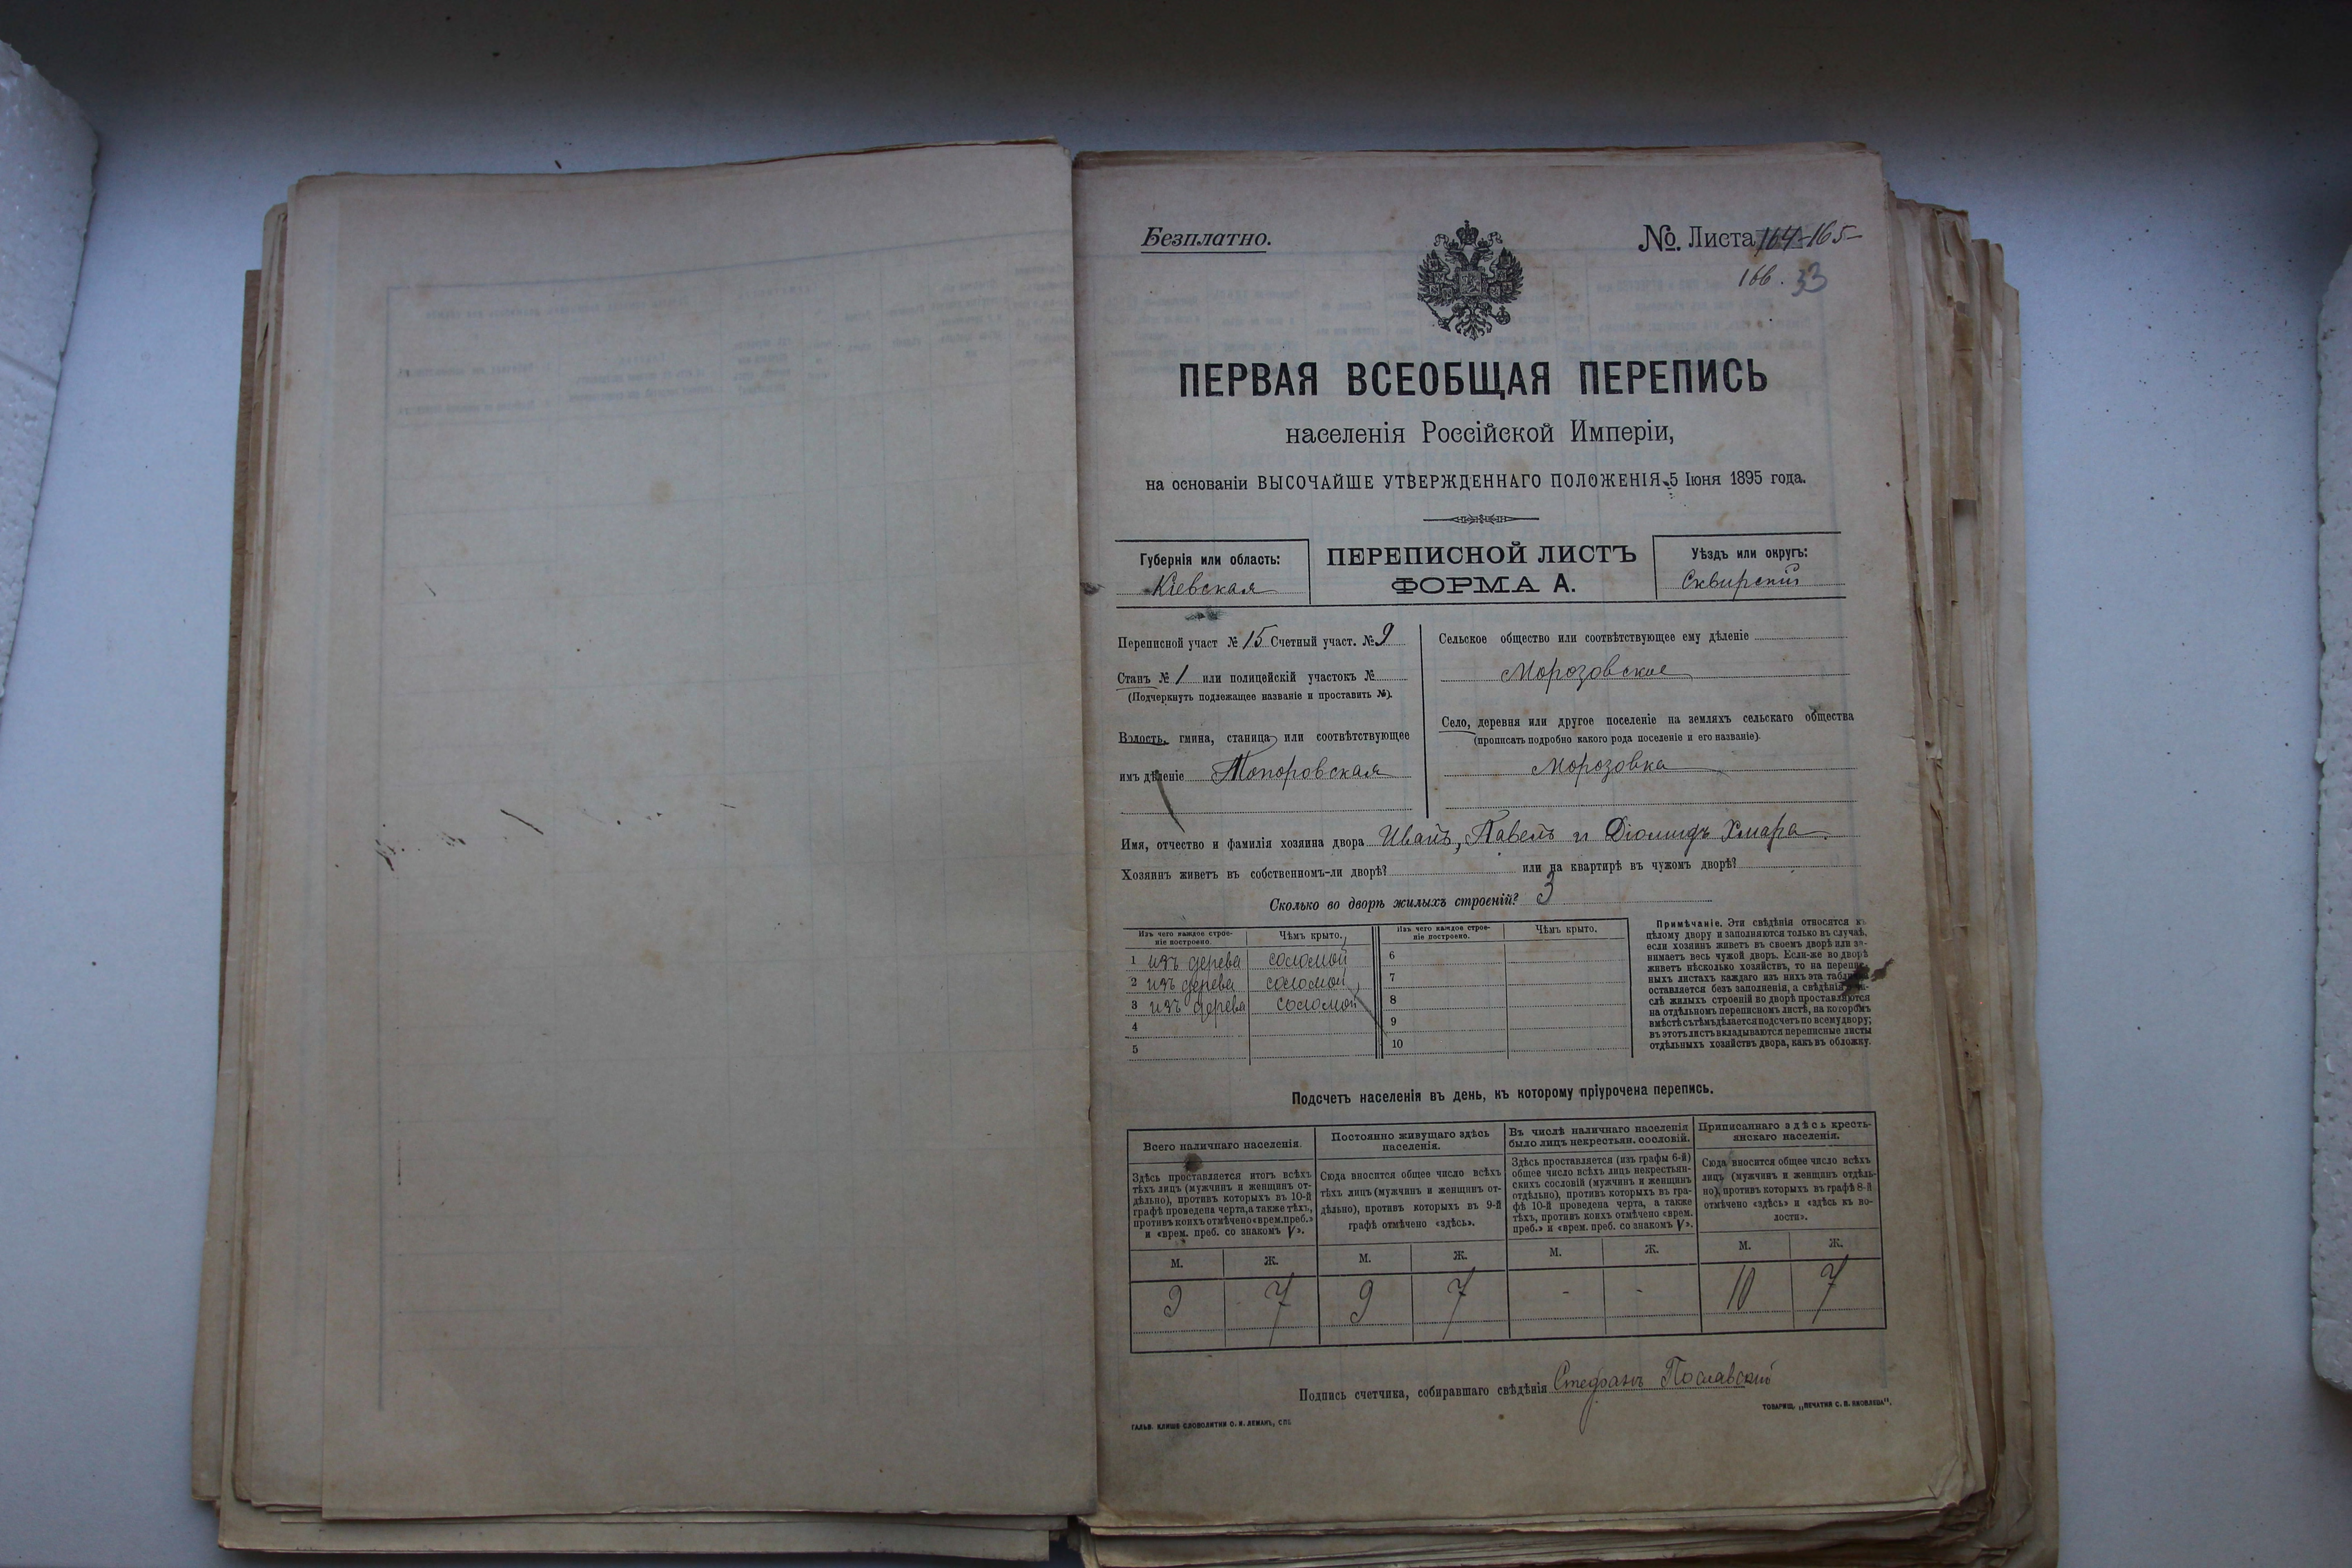 Безплатно.
№. Листа 164-165-
166. 33
ПЕРВАЯ ВСЕОБЩАЯ ПЕРЕПИСЬ
населенія Россійской Имперіи,
на основаніи ВЫСОЧАЙШЕ УТВЕРЖДЕННАГО ПОЛОЖЕНІЯ 5 Іюня 1895 года.
Губернія или область:
Кіевская
ПЕРЕПИСНОЙ ЛИСТЪ
ФОРМА А.
Уѣздъ или округъ:
Сквирскій
Переписной участ № 15 Счетный участ. № 9
Станъ № 1 или полицейскій участокъ №
(Подчеркнуть подлежащее названіе и проставить №).
Волость, гмина, станица или соотвѣтствующее
имъ дѣленіе Топоровская
Сельское общество или соотвѣтствующее ему дѣленіе
Морозовское
Село, деревня или другое поселеніе на земляхъ сельскаго общества
(прописать подробно какого рода поселеніе и его названіе).
Морозовка
Имя, отчество и фамилія хозяина двора Иванъ, Павелъ и Діомидъ Хмара
Хозяинъ живетъ въ собственномъ-ли дворѣ? или на квартирѣ въ чужомъ дворѣ?
Сколько во дворѣ жилыхъ строеній? 3
Изъ чего каждое строе-
ніе построено.
Чѣмъ крыто.
1 изъ дерева соломой
2 изъ дерева соломой
3 изъ дерева соломой
4
5
Изъ чего каждое строе-
ніе построено.
Чѣмъ крыто.
6
7
8
9
10
Примѣчаніе. Эти свѣдѣнія относятся къ
цѣлому двору и заполняются только въ случаѣ,
если хозяинъ живетъ въ своемъ дворѣ или за-
нимаетъ весь чужой дворъ. Если-же во дворѣ
живетъ нѣсколько хозяйствъ, то на перепис-
ныхъ листахъ каждаго изъ нихъ эта таблица
оставляется безъ заполненія, а свѣдѣнія о чи-
слѣ жилыхъ строеній во дворѣ проставляются
на отдѣльномъ переписномъ листѣ, на которомъ
вмѣстѣ съ тѣмъ дѣлается подсчетъ по всему двору;
въ этотъ листъ вкладываются переписные листы
отдѣльныхъ хозяйствъ двора, какъ въ обложку.
Подсчетъ населенія въ день, къ которому пріурочена перепись.
Всего наличнаго населенія.
Здѣсь проставляется итогъ всѣхъ
тѣхъ лицъ (мужчинъ и женщинъ от-
дѣльно), противъ которыхъ въ 10-й
графѣ проведена черта, а также тѣхъ,
противъ коихъ отмѣчено «врем. преб.»
и «врем. преб. со знакомъ V».
Постоянно живущаго здѣсь
населенія.
Сюда вносится общее число всѣхъ
тѣхъ лицъ (мужчинъ и женщинъ от-
дѣльно), противъ которыхъ въ 9-й
графѣ отмѣчено «здѣсь».
Въ числѣ наличнаго населенія
было лицъ некрестьян. сословій.
Здѣсь проставляется (изъ графы 6-й)
общее число всѣхъ лицъ некрестьян-
скихъ сословій (мужчинъ и женщинъ
отдѣльно), противъ которыхъ въ гра-
фѣ 10-й проведена черта, а также
тѣхъ, противъ коихъ отмѣчено «врем.
преб.» и «врем. преб. со знакомъ V».
Приписаннаго здѣсь кресть-
янскаго населенія.
Сюда вносится общее число всѣхъ
лицъ (мужчинъ и женщинъ отдѣль-
но), противъ которыхъ въ графѣ 8-й
отмѣчено «здѣсь» и «здѣсь къ во-
лости».
М. Ж. М. Ж. М. Ж. М. Ж.
9 7 9 7 - - 10 7
Подпись счетчика, собиравшаго свѣдѣнія Стефанъ Пославскій
ГАЛЬВ. КЛИШЕ СЛОВОЛИТНИ О. И. ЛЕМАНЪ, СПБ.
ТОВАРИЩ. „ПЕЧАТНЯ С. П. ЯКОВЛЕВА".